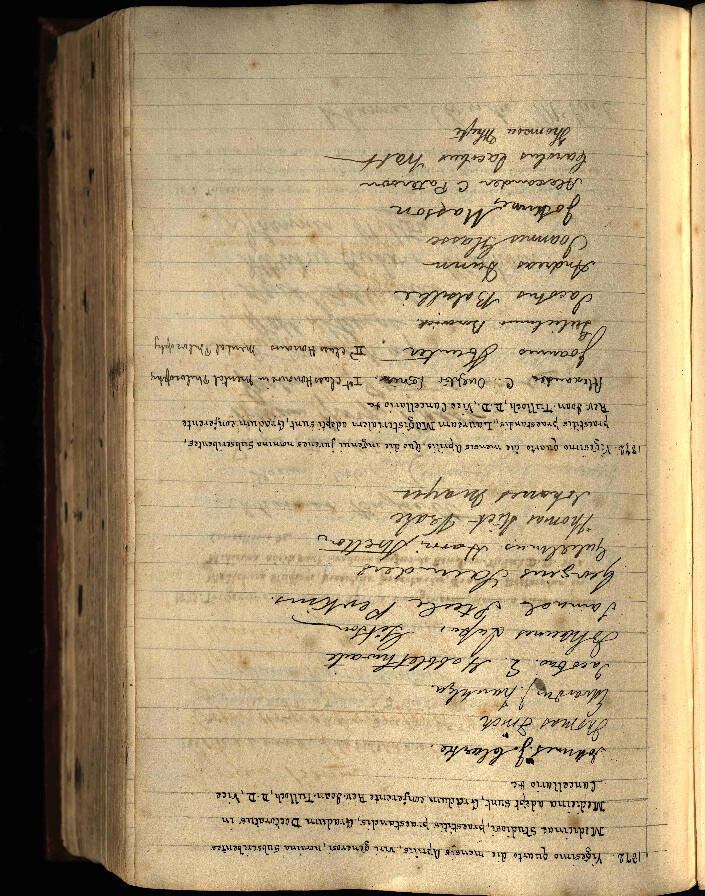 1872. Vigesimo quarto die mensis Aprilis, viri, generosi, nomina, subscribentes
Medicinae Studiosi, praestitis, praestandis, Gradum Doctoratus in
Medicina adepti sunt, Gradum conferente Rev. Joan. Tulloch, D. D. Vice
Cancellario &c
Johannes J. Clarke.
Thomas Finch
Edvardus J.
Jacobus E. Habblethwaite
Johannes Gibson
Samuel Steele Perkins.
Georgius Saunders
Gulielmus Harris Stretton
Thomas Scott Veale
Johannes Mayer
1872. Vigesimo quarto die mensis Aprilis, Quo die ingenui juvenes nomina subscribentes,
praestitis praestandis, Lauream Magistralem adepti sunt, Gradum conferente
Rev. Joan. Tulloch, D. D. Vice Cancellario &c
Alexander C. Ist Class Honours in Mental Philosophy
Joannes Hunter IId Class Honours Mental Philosophy
Gulielmus Barwick.
Jacobus
Andreas Dunn
Joannes Glasse
Joannes Masson
Alexander C Paterson
Carolus Watt
Thomson Whyte